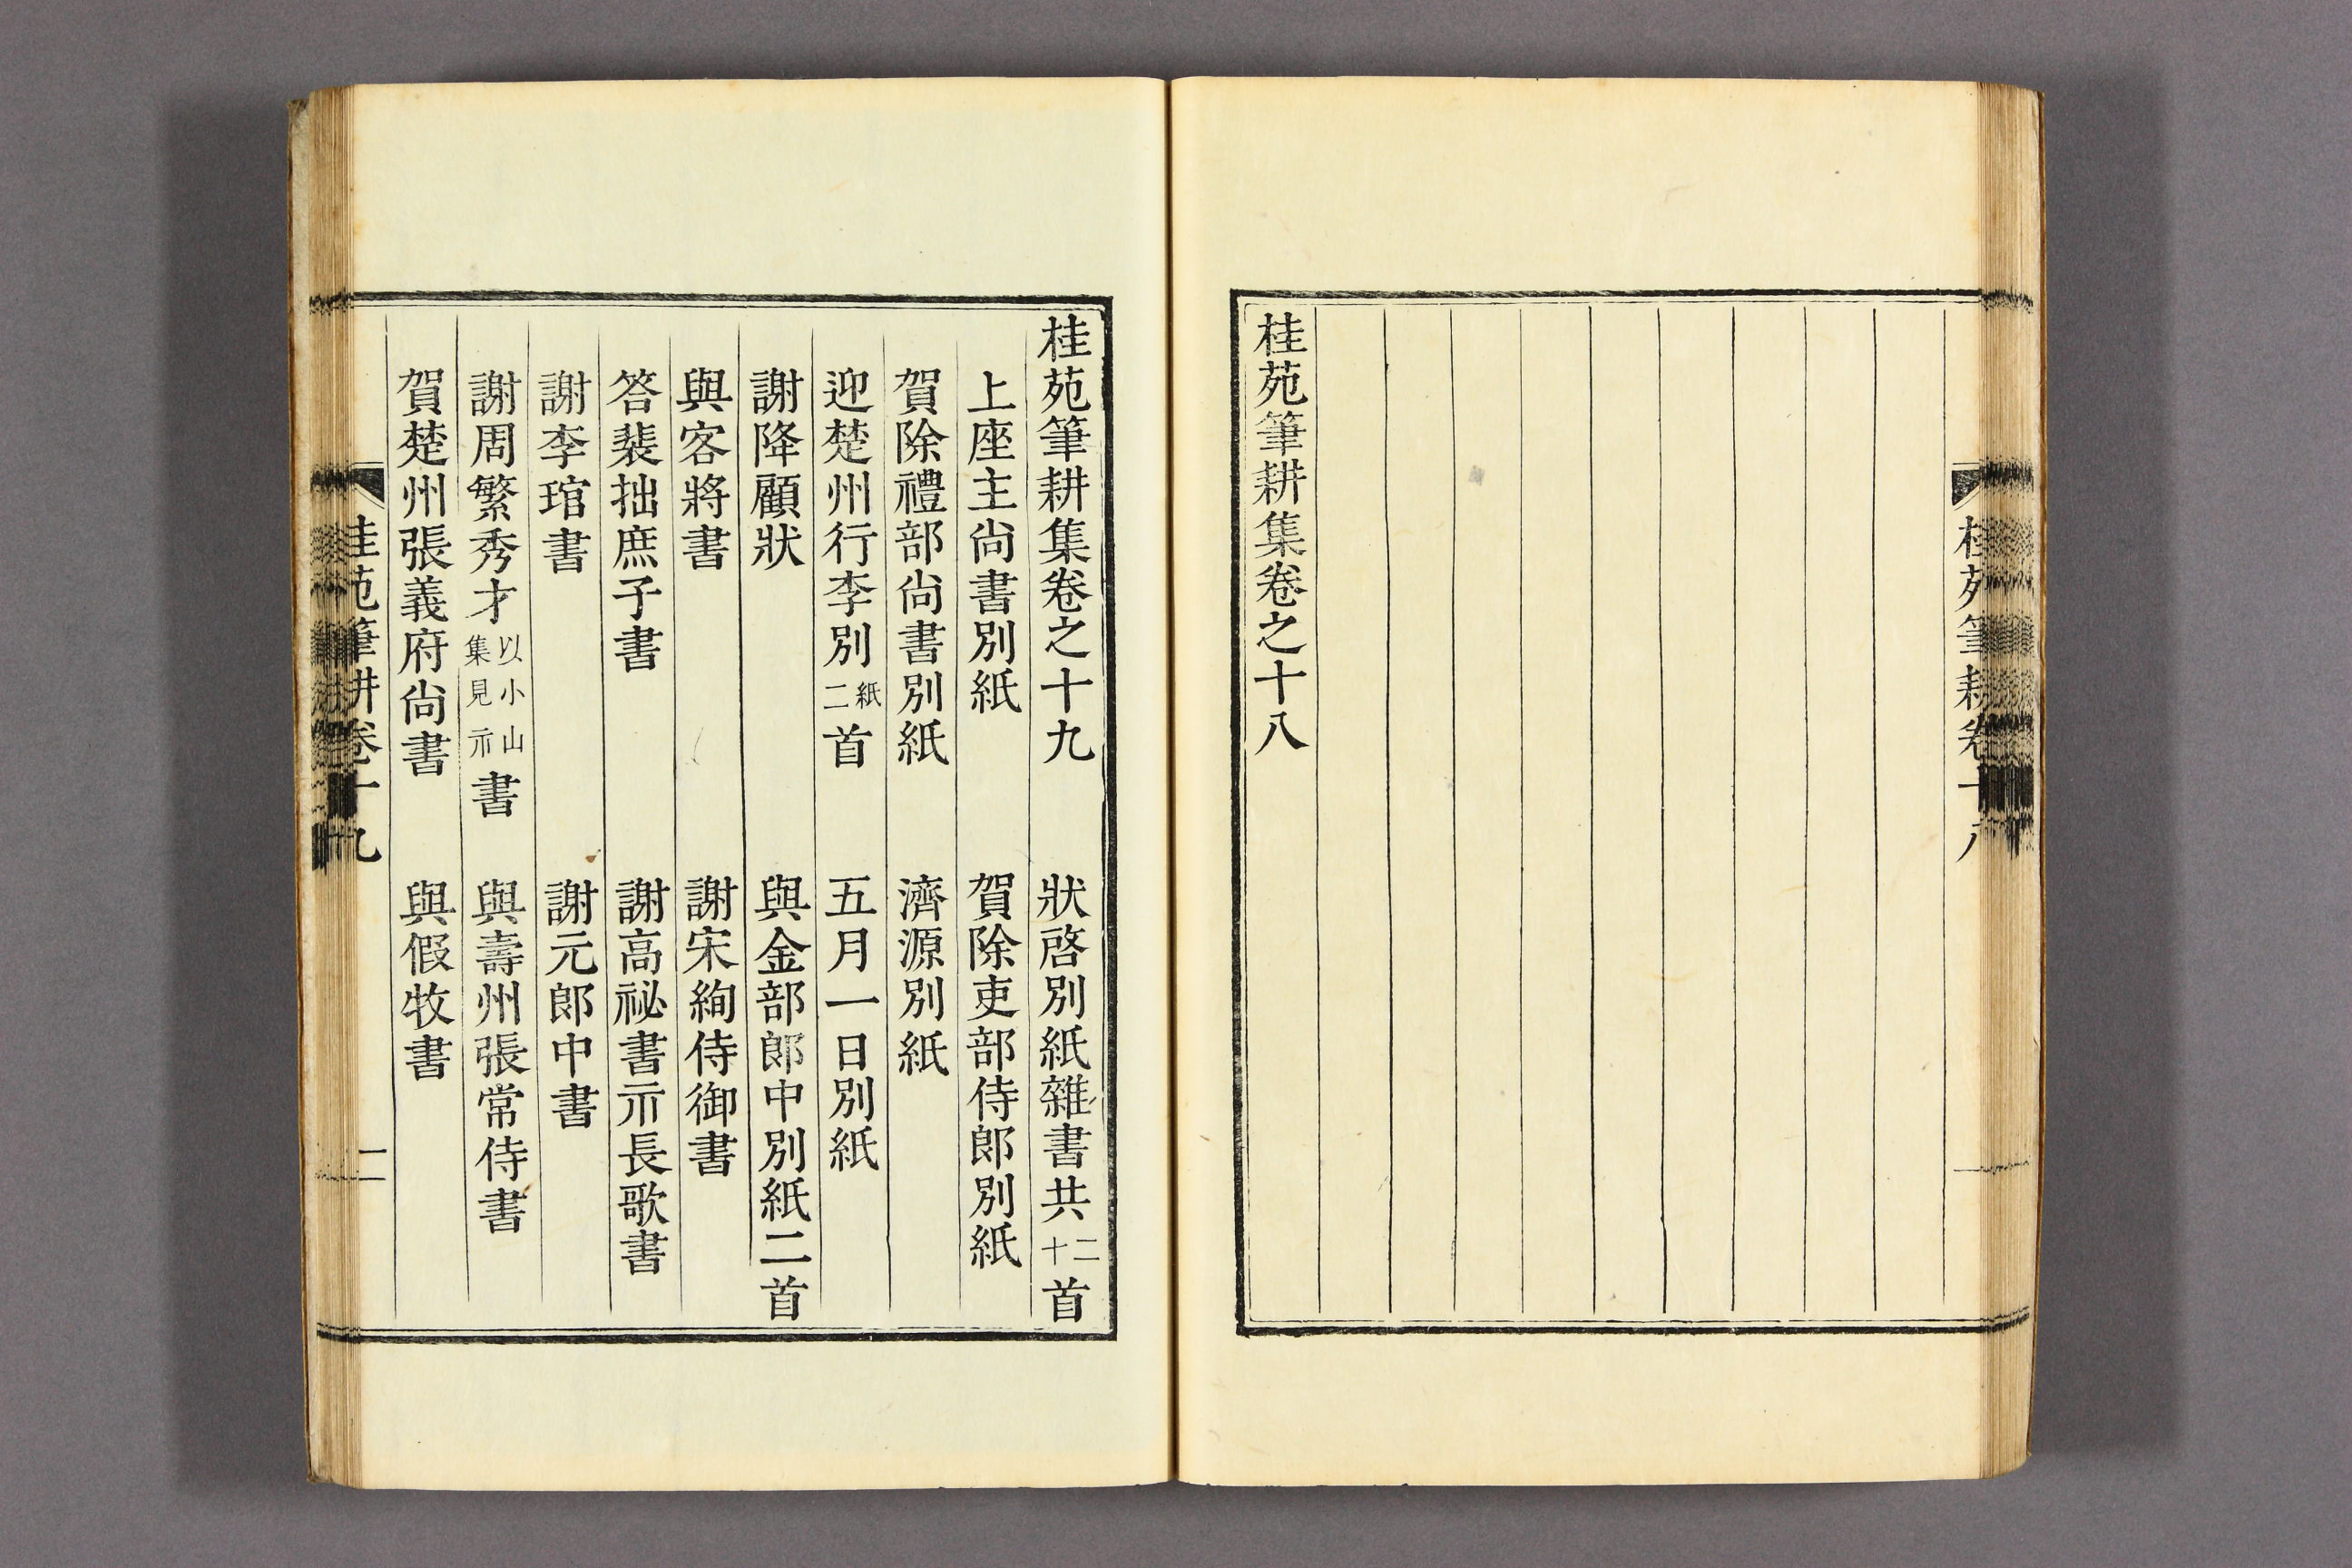 桂苑筆耕集卷之十八
桂苑筆耕卷十八
桂苑筆耕集卷之十九
狀啓別紙雜書共二十首
上座主尙書別紙
賀除吏部侍郎別紙
賀除禮部尙書別紙
濟源別紙
迎楚州行李別紙二首
五月一日別紙
謝降顧狀
與金部郎中別紙二首
與客將書
謝宋絢侍御書
答裴拙庶子書
謝高祕書示長歌書
謝李琯書
謝元郎中書
謝周繁秀才以小山集見示書
與壽州張常侍書
賀楚州張義府尙書
與假牧書
桂苑筆耕卷十九
一